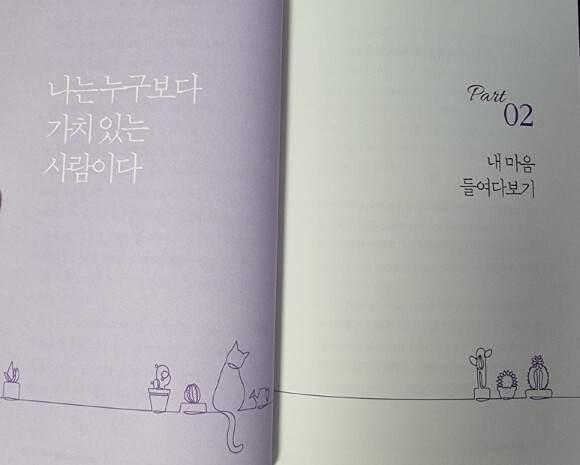 나는 누구보다
가치 있는
사람이다
Part
02
내 마음
들여다보기